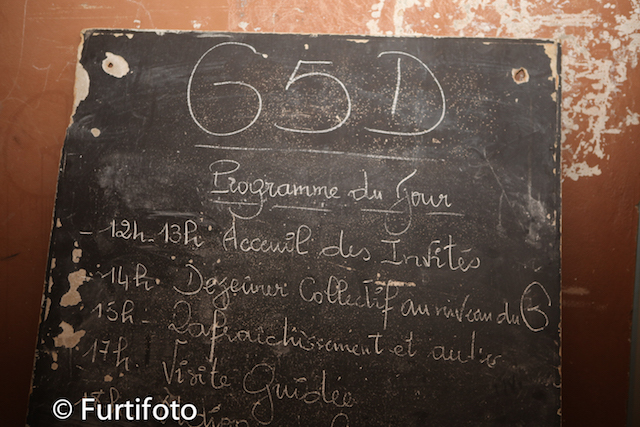 G5D
Programme du Jour
- 12h-13h: Acceuil des Invités
14h. Dejeuner Collectif au niveau du G
15h - Rafraichissement et
17h. Visite Guidée
© Furtifoto